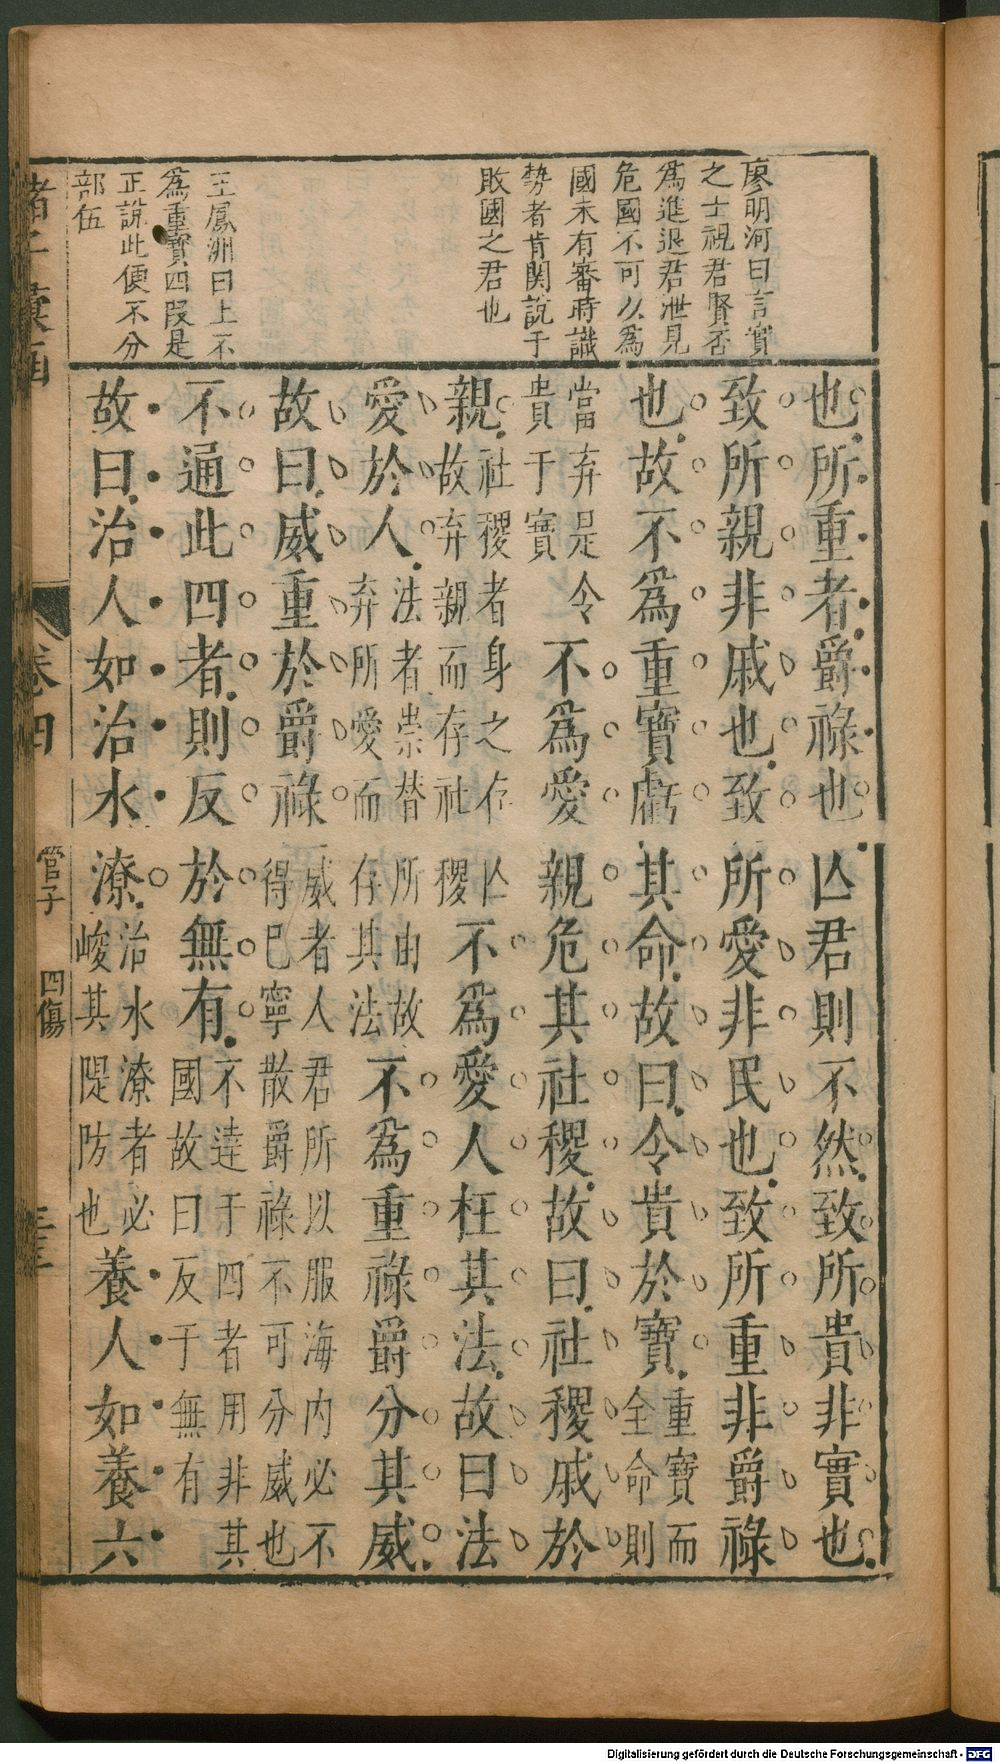 廖明河曰言實
之士視君賢否
爲進退君泄見
危國不可以爲
國未有審時識
勢者肯関說于
敗國之君也
王鳳洲曰上不
爲重寶四段是
正說此便不分
部伍
也所重者爵祿也亾君則不然致所貴非實也
致所親非戚也致所愛非民也致所重非爵祿
也故不爲重寶虧其命故曰令貴於寶重寶而全命則
當弃是令貴于寶不爲愛親危其社稷故曰社稷戚於
親社稷者身之存亾故弃親而存社稷不爲愛人枉其法故曰法
愛於人法者崇替所由故弃所愛而存其法不爲重祿爵分其威
故曰威重於爵祿威者人君所以服海内必不得巳寧散爵祿不可分威也
不通此四者則反於無有不達于四者用非其國故曰反于無有
故曰治人如治水潦治水潦者必峻其隄防也養人如養六
諸子彙函 卷四 管子 四傷
Digitalisierung gefördert durch die Deutsche Forschungsgemeinschaft - DFG